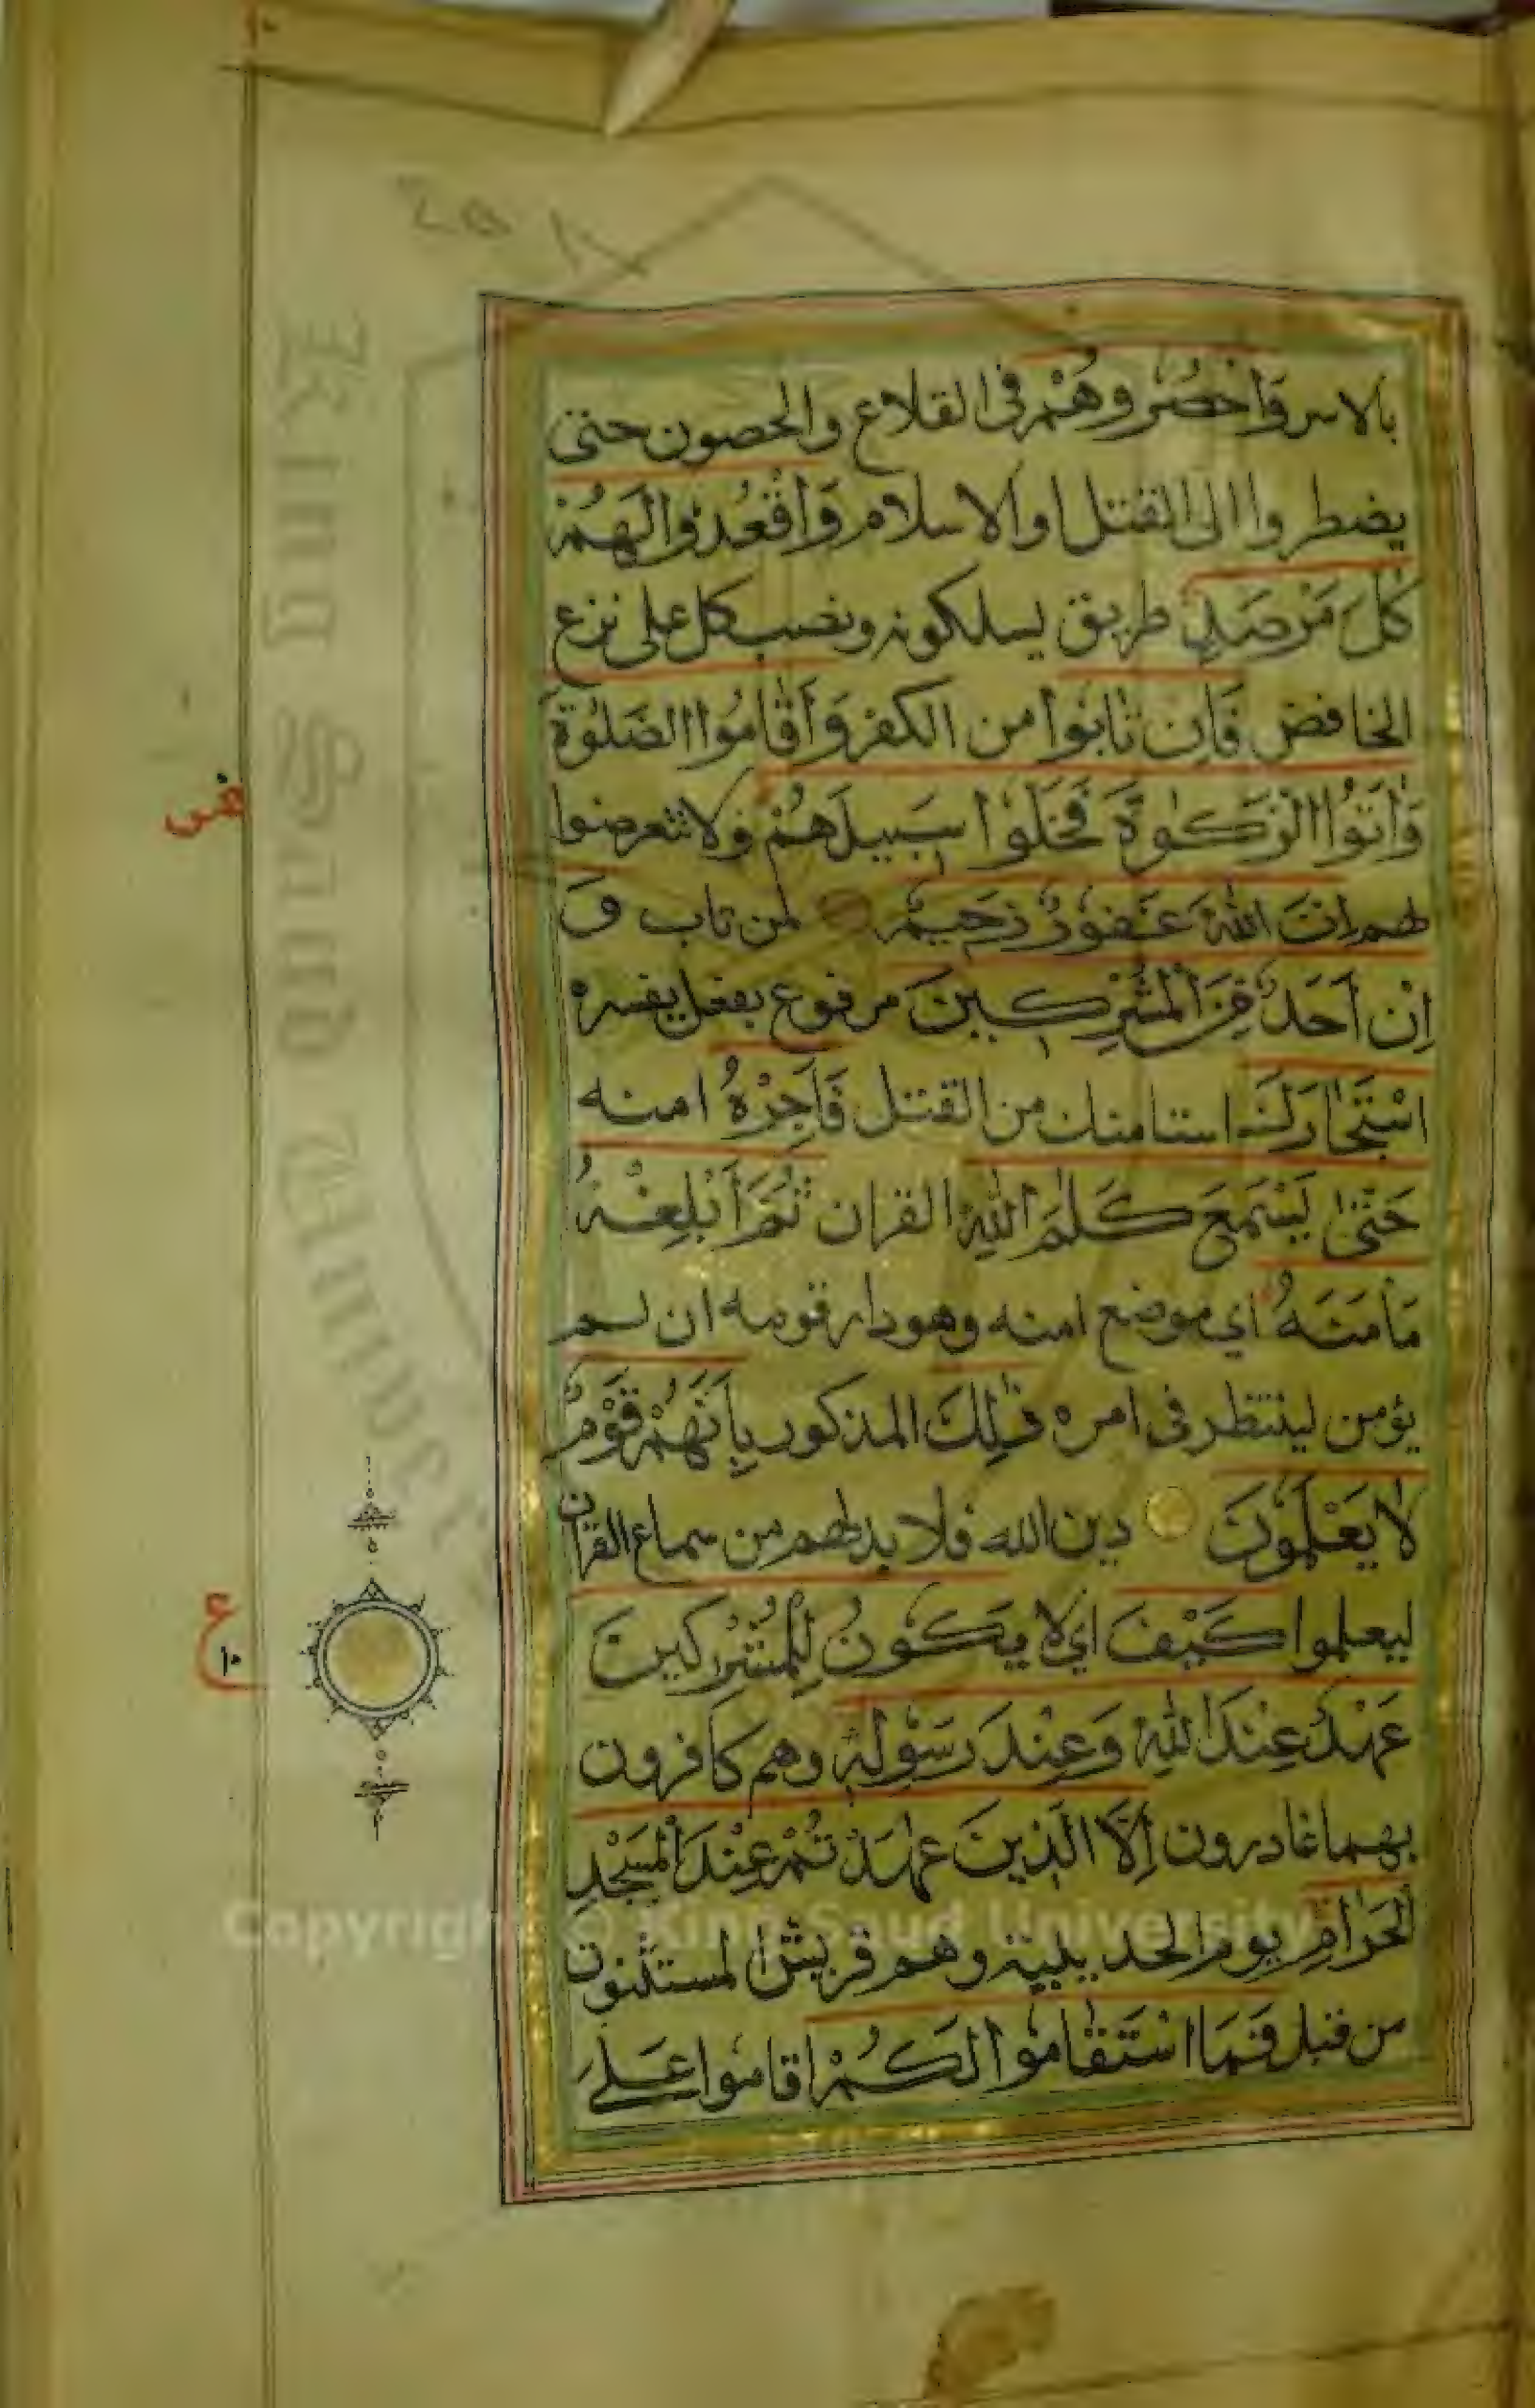 بالاسر وَاحْصُرُوهُمْ فى القلاع والحصون حتى
يضطروا الى القتل او الاسلام وَاقْعُدُوا لَهُمْ
كُلَّ مَرْصَدٍ طريق يسلكونه ونصب كل على نزع
الخافض فَاِن تَابُوا من الكفر وَاَقَامُوا الصَّلٰوةَ
وَاٰتَوُا الزَّكٰوةَ فَخَلُّوا سَبِيلَهُمْ ولا تتعرضوا
لهم اِنَّ اللّٰهَ غَفُورٌ رَحِيمٌ لمن تاب وَ
اِنْ اَحَدٌ مِنَ الْمُشْرِكِينَ مرفوع بفعل يفسره
اسْتَجَارَكَ استامنك من القتل فَاَجِرْهُ امنه
حَتّٰى يَسْمَعَ كَلٰمَ اللّٰهِ القران ثُمَّ اَبْلِغْهُ
مَاْمَنَهُ اي موضع امنه وهو دار قومه ان لم
يؤمن لينتظر فى امره ذٰلِكَ المذكور بِاَنَّهُمْ قَوْمٌ
لَا يَعْلَمُونَ دين الله فلا بد لهم من سماع القران
ليعلموا كَيْفَ اي لا يَكُونُ لِلْمُشْرِكِينَ
عَهْدٌ عِنْدَ اللّٰهِ وَعِنْدَ رَسُولِهٖ وهم كافرون
بهما غادرون اِلَّا الَّذِينَ عٰهَدْتُمْ عِنْدَ الْمَسْجِدِ
الْحَرَامِ يوم الحديبية وهم قريش المستثنون
من قبل فَمَا اسْتَقَامُوا لَكُمْ اقاموا على
ع
١٠
Copyright © King Saud University
King Saud University